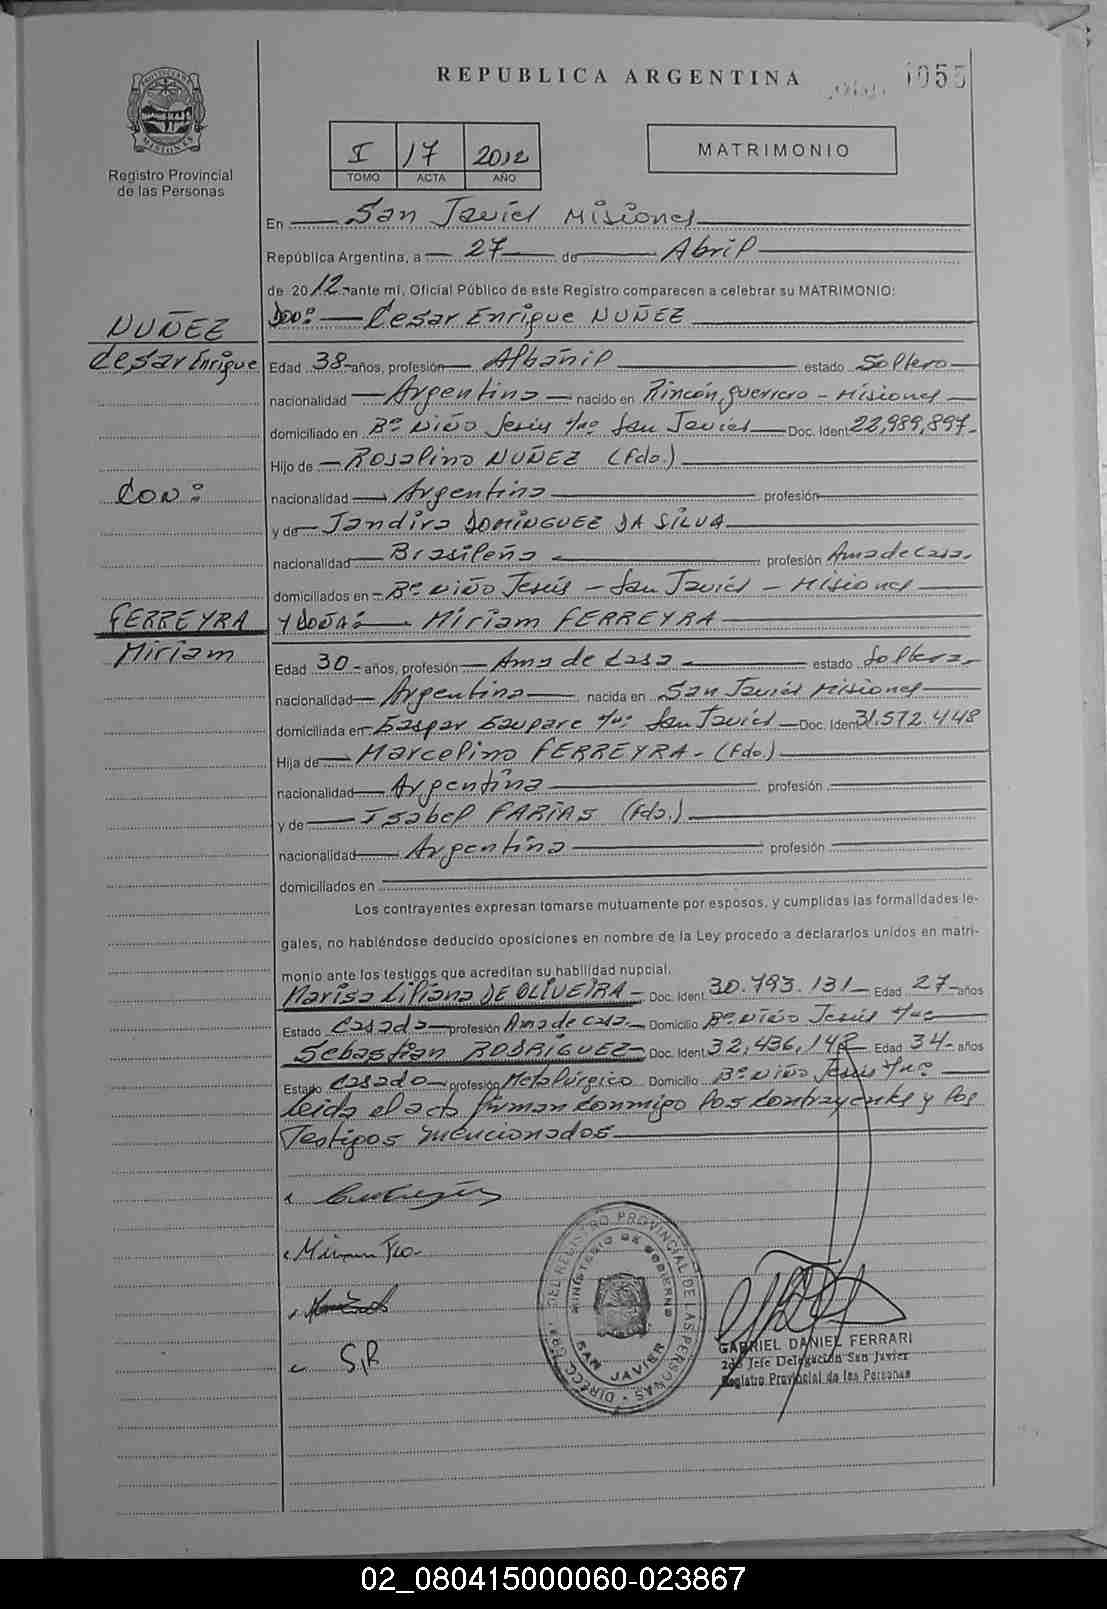 REPUBLICA ARGENTINA
1055
PROVINCIA DE MISIONES
Registro Provincial
de las Personas
I 17 2012
TOMO ACTA AÑO
MATRIMONIO
En San Javier Misiones
República Argentina, a 27 de Abril
de 2012 ante mí, Oficial Público de este Registro comparecen a celebrar su MATRIMONIO:
NUÑEZ
Cesar Enrique
CON:
FERREYRA
Miriam
DON: Cesar Enrique NUÑEZ
Edad 38 años, profesión Albañil estado Soltero
nacionalidad Argentina nacido en Rincón guerrero - Misiones
domiciliado en Bº Niño Jesús San Javier Doc. Ident. 22,989,897
Hijo de Rosalino NUÑEZ (fdo.)
nacionalidad Argentina profesión
y de Jandira DOMINGUEZ DA SILVA
nacionalidad Brasileña profesión Ama de Casa
domiciliados en Bº Niño Jesús - San Javier - Misiones
Y DOÑA: Miriam FERREYRA
Edad 30 años, profesión Ama de Casa estado Soltera
nacionalidad Argentina nacida en San Javier Misiones
domiciliada en Gaspar San Javier Doc. Ident 31.572.448
Hija de Marcelino FERREYRA - (Fdo.)
nacionalidad Argentina profesión
y de Isabel FARIAS (Fda.)
nacionalidad Argentina profesión
domiciliados en
Los contrayentes expresan tomarse mutuamente por esposos, y cumplidas las formalidades le-
gales, no habiéndose deducido oposiciones en nombre de la Ley procedo a declararlos unidos en matri-
monio ante los testigos que acreditan su habilidad nupcial.
Marisa Liliana DE OLIVEIRA - Doc. Ident. 30.793.131 Edad 27 años
Estado Casada profesión Ama de casa Domicilio Bº Niño Jesús
Sebastian RODRÍGUEZ Doc. Ident. 32,436,142 Edad 34 años
Estado Casado profesión Metalúrgico Domicilio Bº Niño Jesús
Leida el acta firman conmigo los contrayentes y los
Testigos mencionados
Miriam
S.R
DIRECC. GRAL. DEL REGISTRO PROVINCIAL DE LAS PERSONAS
MINISTERIO DE GOBIERNO
SAN JAVIER
GABRIEL DANIEL FERRARI
2do Jefe Delegación San Javier
Registro Provincial de las Personas
02_080415000060-023867